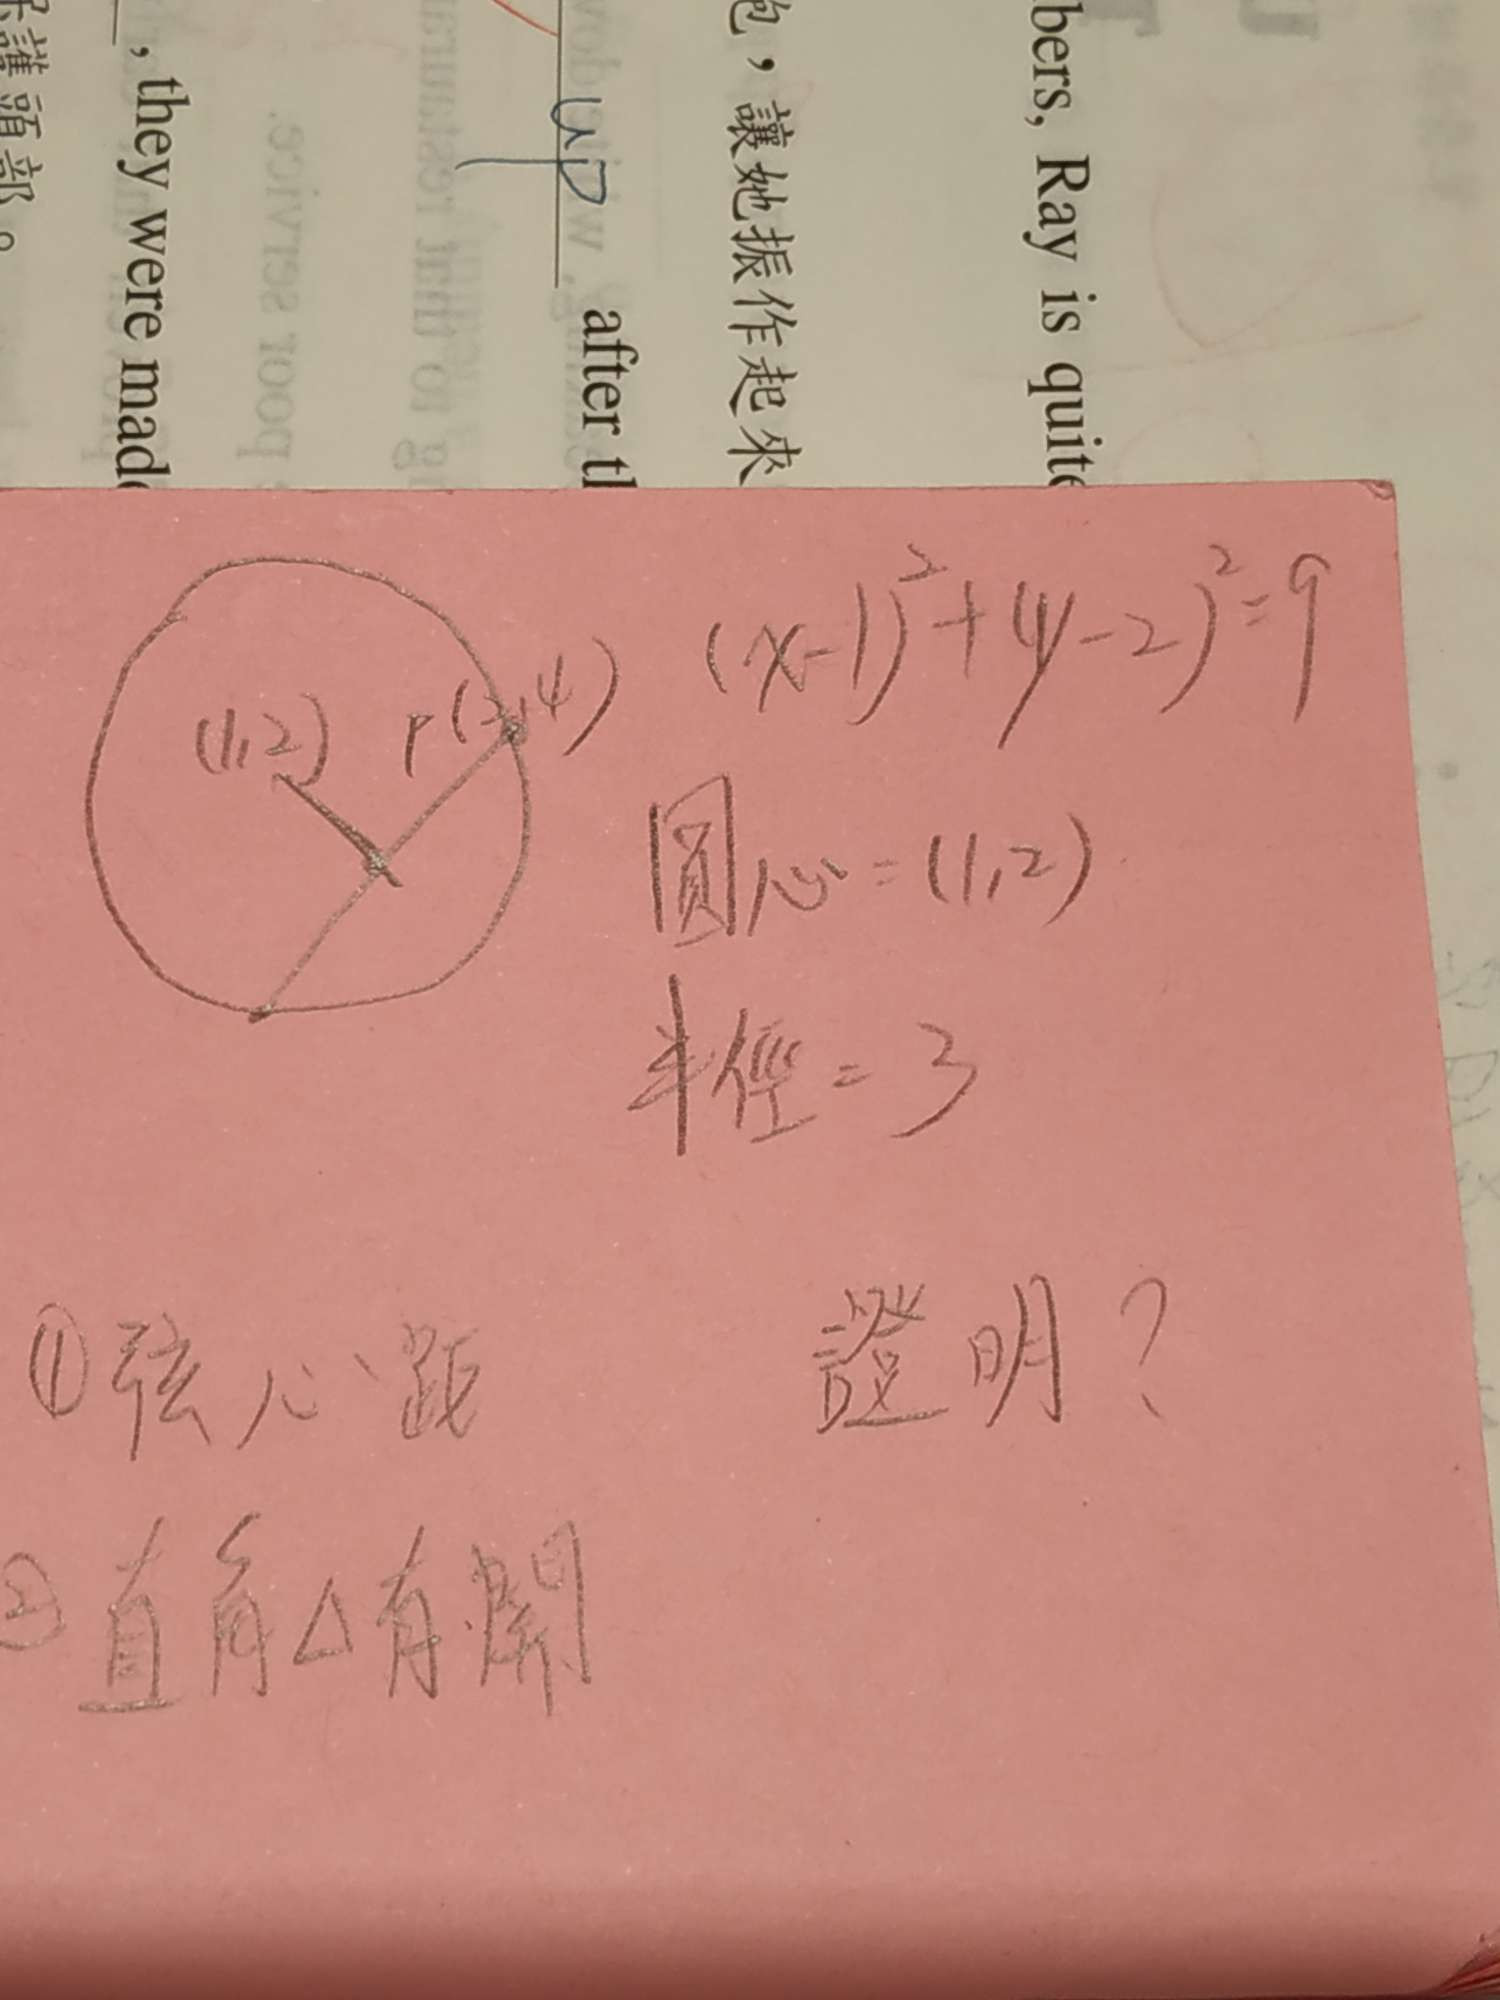 bers, Ray is quite
，讓她振作起來
up after th
, they were made
護頭部。
(x-1)²+(y-2)²=9
(1,2)
圓心=(1,2)
半徑=3
①弦心距
證明？
②直角△有關